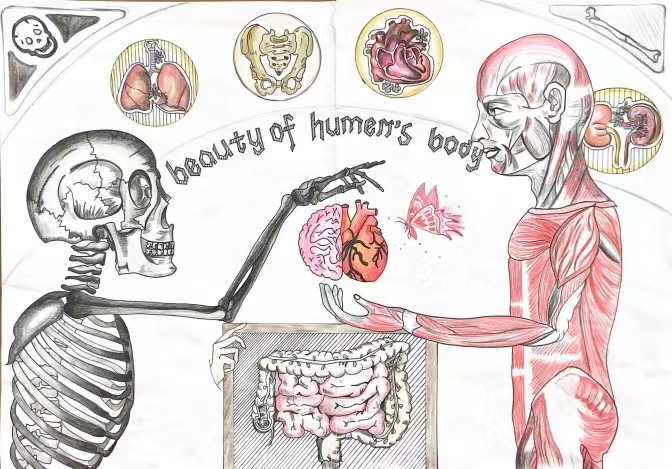 beauty of humen's body